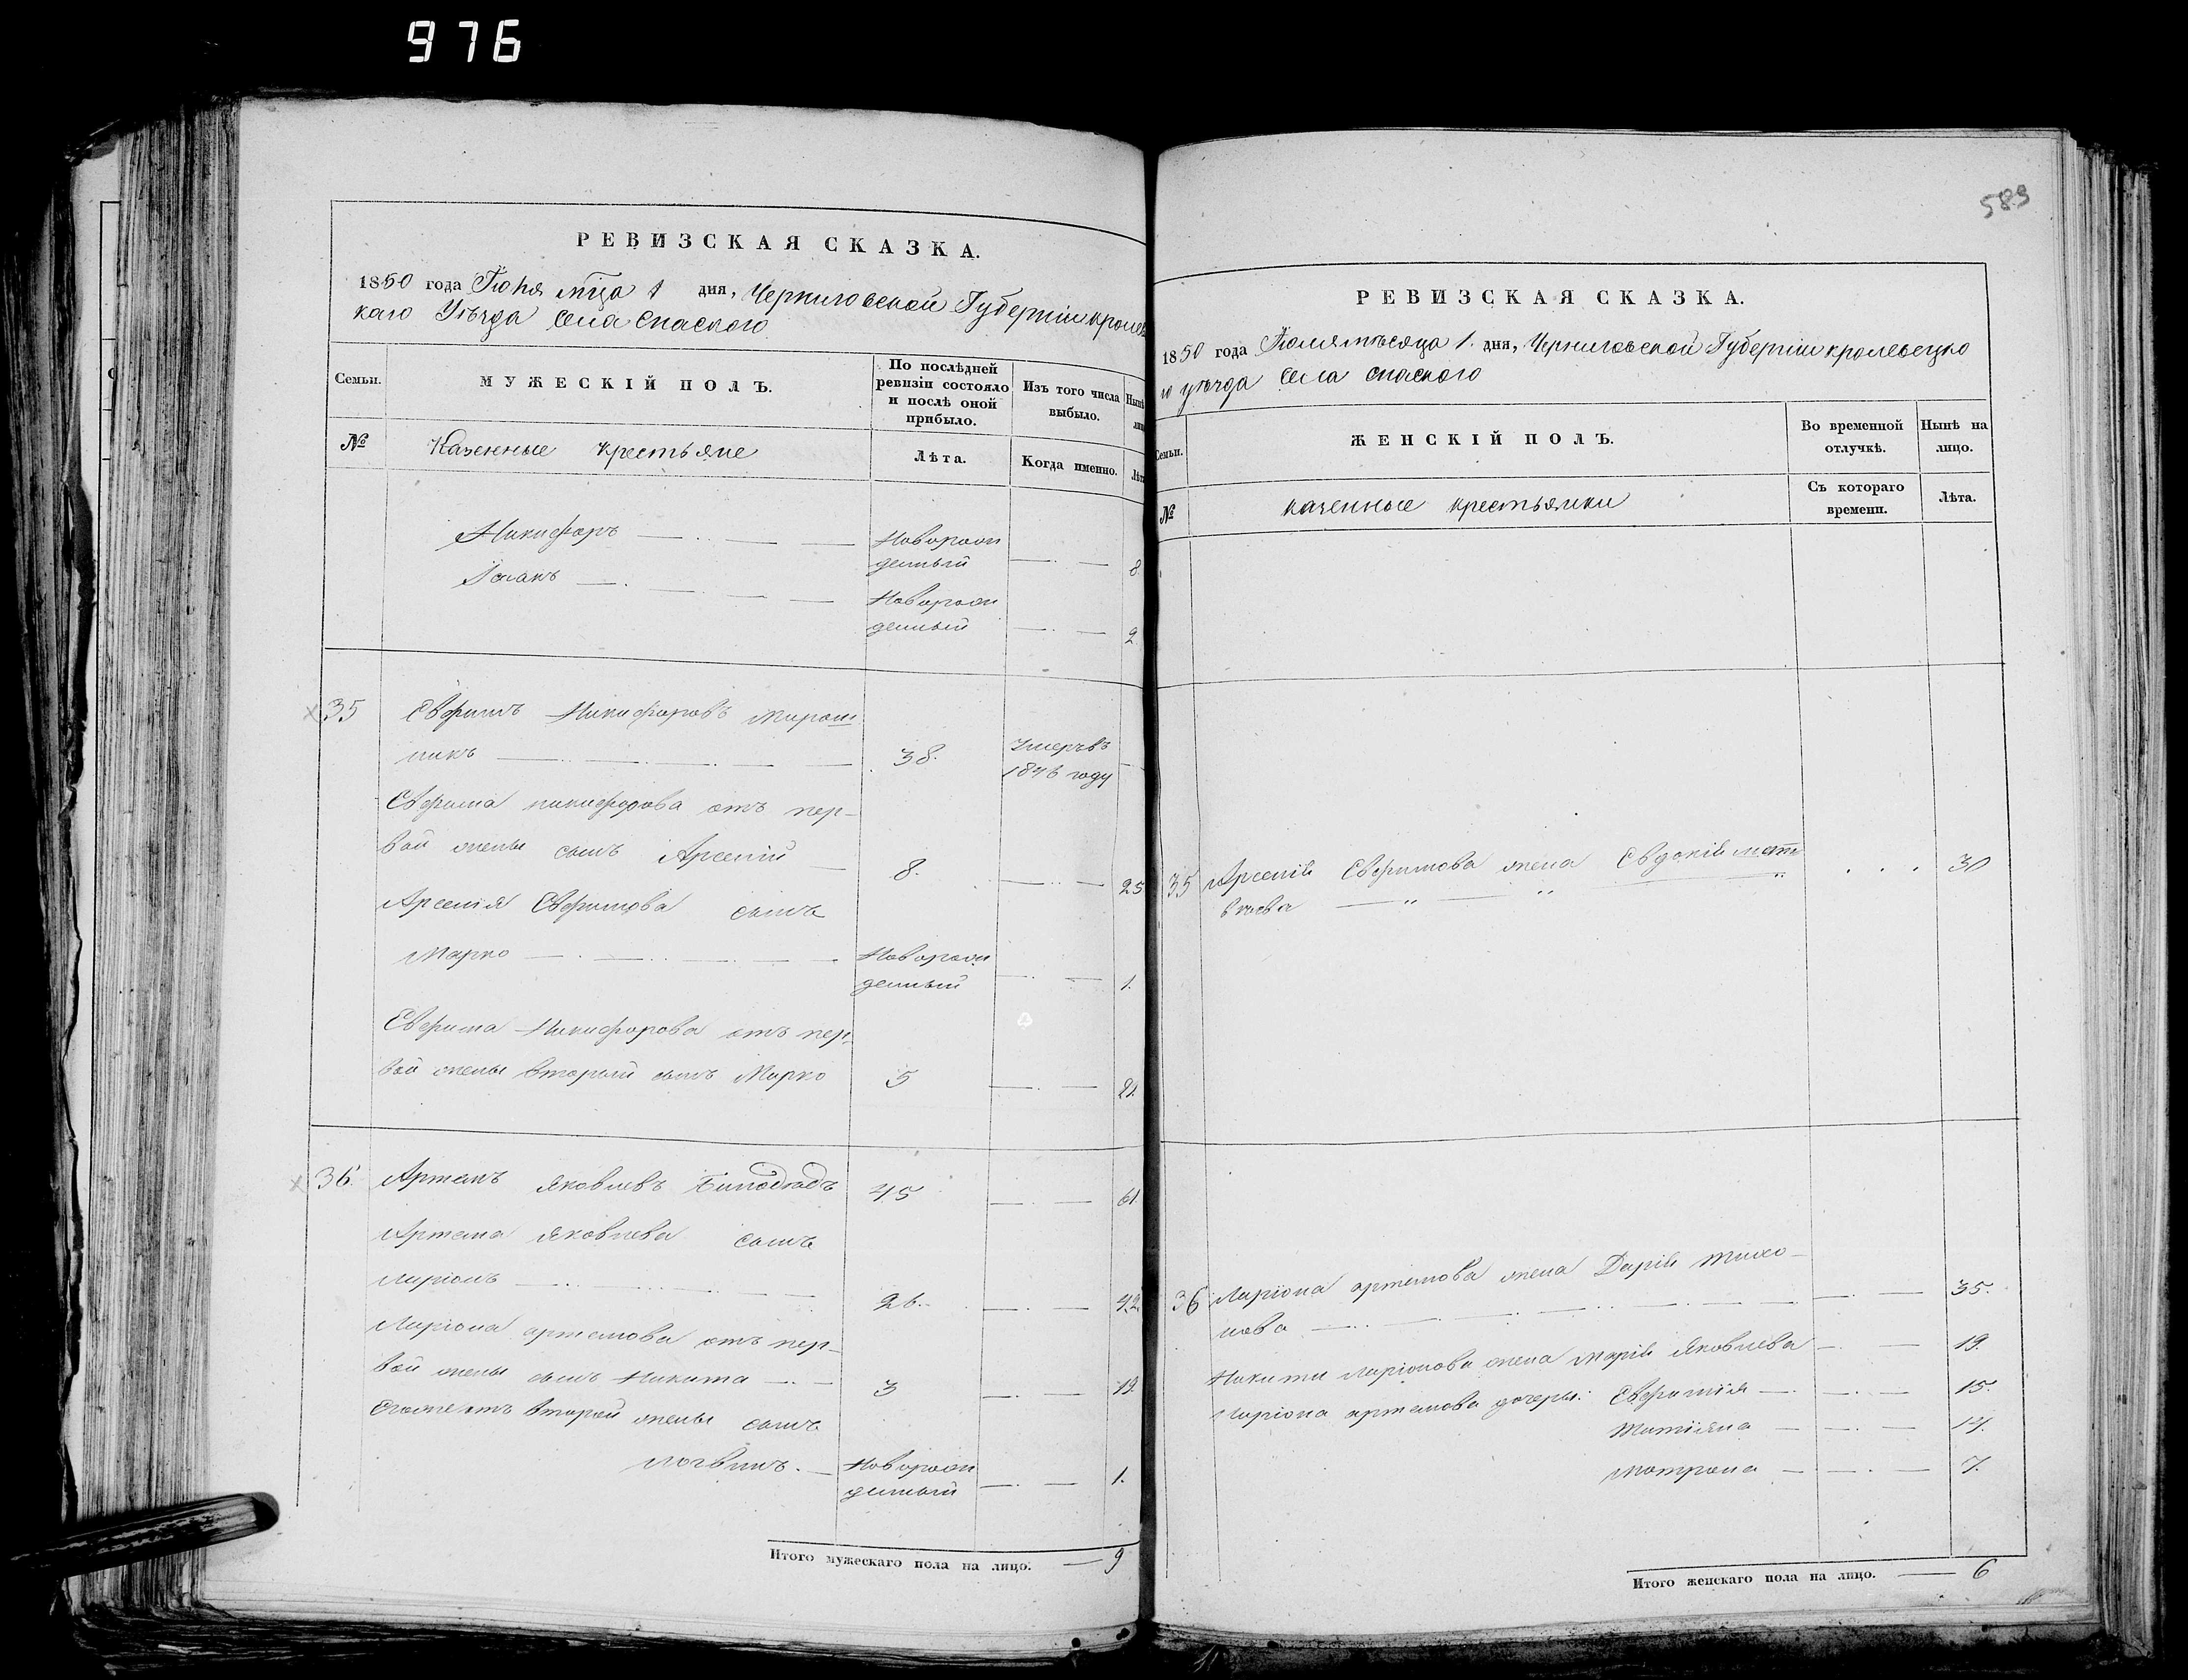 976
РЕВИЗСКАЯ СКАЗКА.
1850 года Іюня мца 1 дня, Черниговской Губерніи кролев
каго Уѣзда села Спаского
Семьи.
МУЖЕСКІЙ ПОЛЪ.
По послѣдней
ревизіи состояло
и послѣ оной
прибыло.
Изъ того числа
выбыло.
Нынѣ
№
Казенные Крестьяне
Лѣта.
Когда именно.
Никифоръ
Новорож
денный
8
Іоганъ
Новорож
денный
2
35
Евфимъ Никифоровъ Мирош
никъ
38.
Умеръ въ
1846 году
Евфима никифорова отъ пер-
вой жены сынъ Арсеній
8.
25
Арсенія Евфимова сынъ
Марко
Новорож
денный
1.
Евфима Никифорова отъ пер
вой жены второй сынъ Марко
5
21.
36
Артемъ Яковлевъ
45
61
Артема Яковлева сынъ
Ларіонъ
26.
42
Ларіона артемова отъ пер-
вой жены сынъ Никита
3
19
Его же отъ второй жены сынъ
Логвинъ.
Новорож
денный
1.
Итого мужескаго пола на лицо. 9
589
РЕВИЗСКАЯ СКАЗКА.
1850 года Іюня мѣсяца 1. дня, Черниговской Губерніи кролевецко
го уѣзда села спаского
Семьи.
ЖЕНСКІЙ ПОЛЪ.
Во временной
отлучкѣ.
Нынѣ на
лицо.
№
казенные крестьянки
Съ котораго
времени.
Лѣта.
35
Арсенія Евфимова жена Евдокія мат
вѣева
30
36
Ларіона артемова жена Дарія Тихо-
нова
35.
Никиты Ларіонова жена Марія Яковлева
19.
Ларіона артемова дочеры: Евфимія
15.
Татіяна
14.
Матрона
7.
Итого женскаго пола на лицо. 6